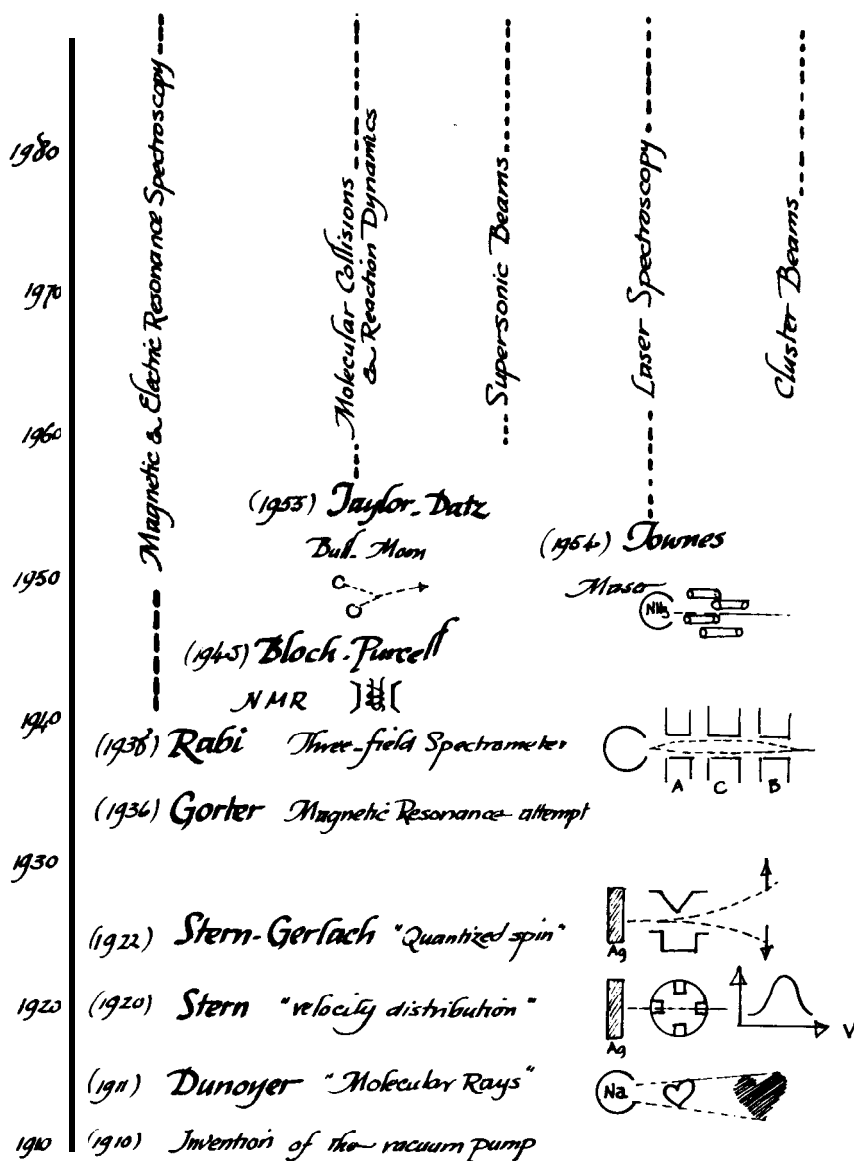 Magnetic & Electric Resonance Spectroscopy
Molecular Collisions
& Reaction Dynamics
Supersonic Beams
Laser Spectroscopy
Cluster Beams
1980
1970
1960
(1955) Taylor-Datz
(1954) Townes
1950
Maser
NH3
Bloch-Purcell
NMR
1940
(1938) Rabi Three-field Spectrometer
A C B
(1936) Gorter Magnetic Resonance attempt
1930
(1922) Stern-Gerlach "Quantized spin"
Ag
1920 (1920) Stern "velocity distribution"
Ag
V
(1911) Dunoyer "Molecular Rays"
Na
1910 (1910) Invention of the vacuum pump